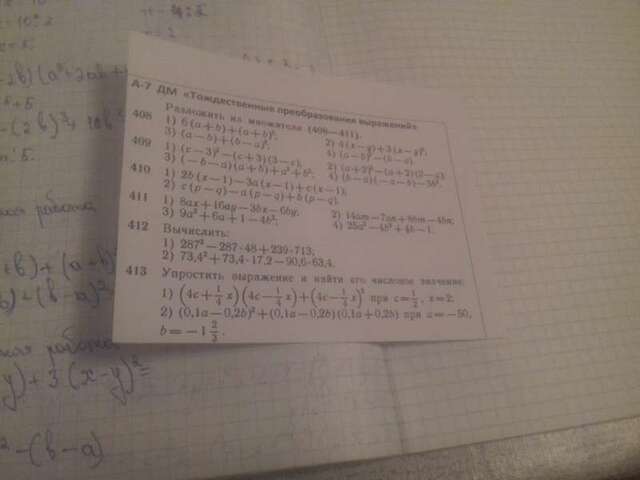 А-7 ДМ «Тождественные преобразования выражений»
408 Разложить на множители (408—411).
1) 6(a+b)+(a+b)²; 2) 4(x−y)+3(x−y)²;
3) (a−b)+(b−a)²; 4) (a−b)²−(b−a).
409 1) (c−3)²−(c+3)(3−c); 2) (a+2)²−(a+2)(2−a);
3) (−b−a)(a+b)+a²+b²; 4) (b−a)(−a−b)−3b².
410 1) 2b(x−1)−3a(x−1)+c(x−1);
2) c(p−q)−a(p−q)+b(p−q).
411 1) 8ax+16ay−3bx−6by; 2) 14am−7an+8bm−4bn;
3) 9a²+6a+1−4b²; 4) 25a²−4b²+4b−1.
412 Вычислить:
1) 287²−287·48+239·713;
2) 73,4²+73,4·17,2−90,6·63,4.
413 Упростить выражение и найти его числовое значение:
1) (4c+1/4 x)(4c−1/4 x)+(4c−1/4 x)² при c=1/2, x=2;
2) (0,1a−0,2b)²+(0,1a−0,2b)(0,1a+0,2b) при a=−50,
b=−1 2/3.
+b)+(a+b)
b)+(b−a)²
y)+3(x−y)²=
²−(b−a)